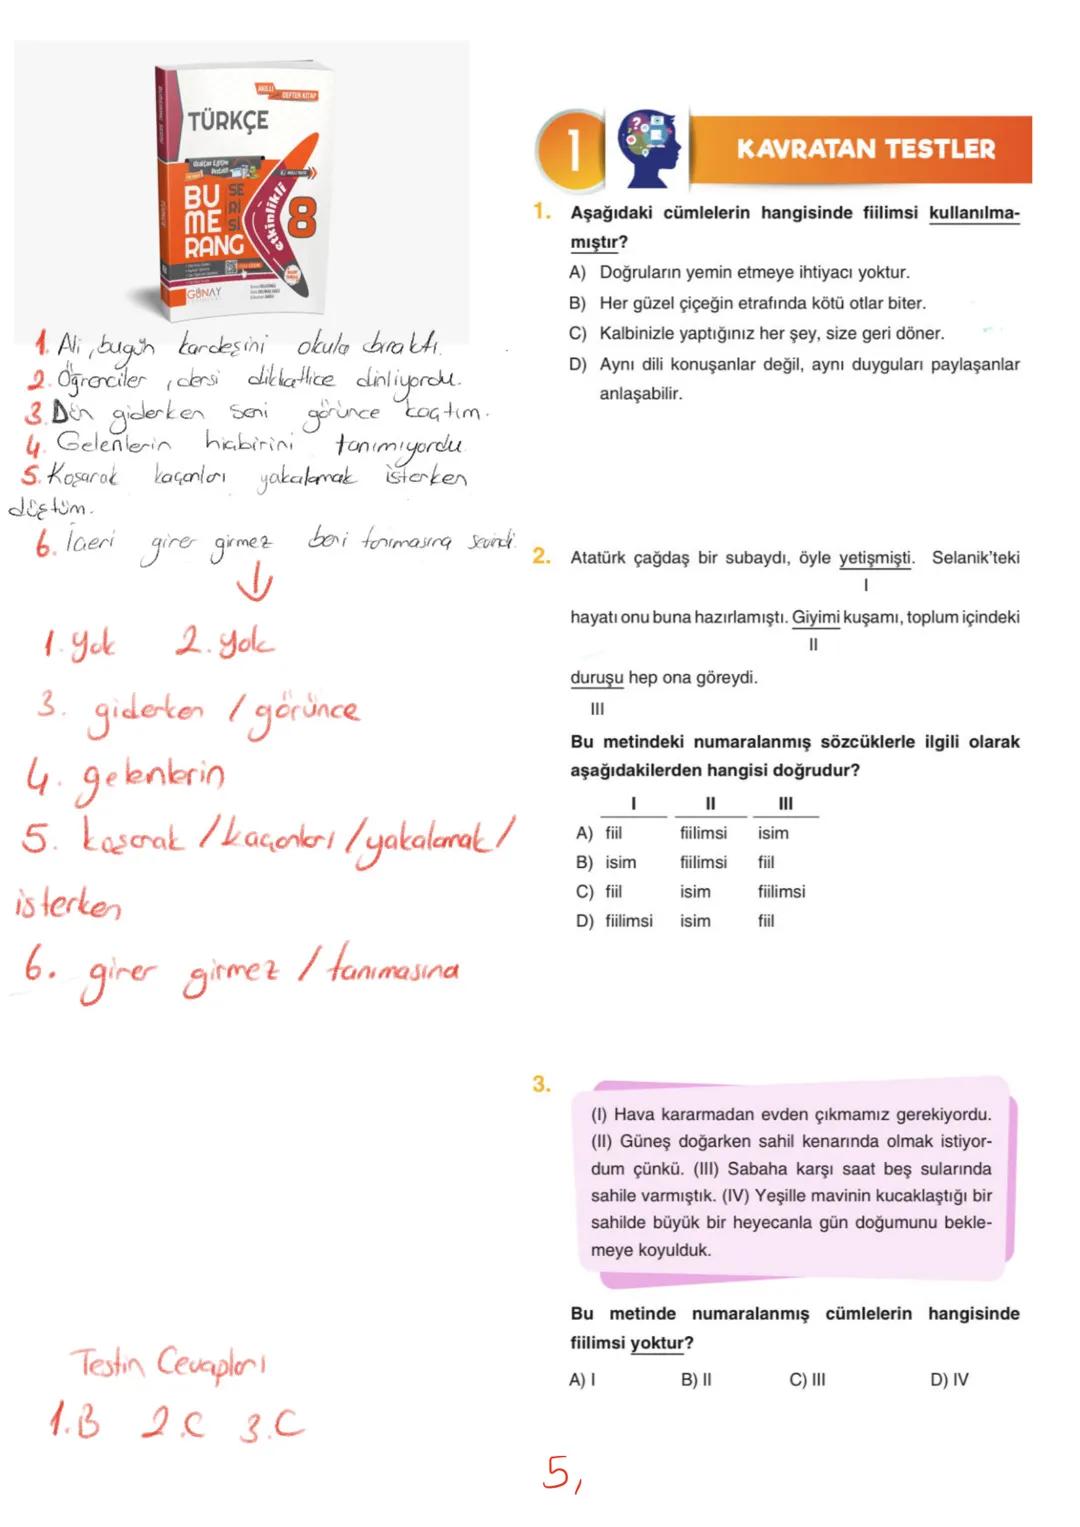 AKILLI
DEFTER KİTAP
TÜRKÇE
BU
ME
RANG
SE
Rİ
Sİ
etkinlikli
8
GÜNAY
1. Ali, bugün kardeşini okula bıraktı.
2. Öğrenciler, dersi dikkatlice dinliyordu.
3. Dün giderken seni görünce kaçtım.
4. Gelenlerin hiçbirini tanımıyordu.
5. Koşarak kaçanları yakalamak isterken
düştüm.
6. İçeri girer girmez beni tanımasına sevindi.
1. yok 2. yok
3. giderken / görünce
4. gelenlerin
5. koşarak / kaçanları / yakalamak /
isterken
6. girer girmez / tanımasına
Testin Cevapları
1.B 2.C 3.C
1
KAVRATAN TESTLER
1. Aşağıdaki cümlelerin hangisinde fiilimsi kullanılma-
mıştır?
A) Doğruların yemin etmeye ihtiyacı yoktur.
B) Her güzel çiçeğin etrafında kötü otlar biter.
C) Kalbinizle yaptığınız her şey, size geri döner.
D) Aynı dili konuşanlar değil, aynı duyguları paylaşanlar
anlaşabilir.
2. Atatürk çağdaş bir subaydı, öyle yetişmişti. Selanik'teki
I
hayatı onu buna hazırlamıştı. Giyimi kuşamı, toplum içindeki
II
duruşu hep ona göreydi.
III
Bu metindeki numaralanmış sözcüklerle ilgili olarak
aşağıdakilerden hangisi doğrudur?
I II III
A) fiil fiilimsi isim
B) isim fiilimsi fiil
C) fiil isim fiilimsi
D) fiilimsi isim fiil
3.
(I) Hava kararmadan evden çıkmamız gerekiyordu.
(II) Güneş doğarken sahil kenarında olmak istiyor-
dum çünkü. (III) Sabaha karşı saat beş sularında
sahile varmıştık. (IV) Yeşille mavinin kucaklaştığı bir
sahilde büyük bir heyecanla gün doğumunu bekle-
meye koyulduk.
Bu metinde numaralanmış cümlelerin hangisinde
fiilimsi yoktur?
A) I B) II C) III D) IV
5,